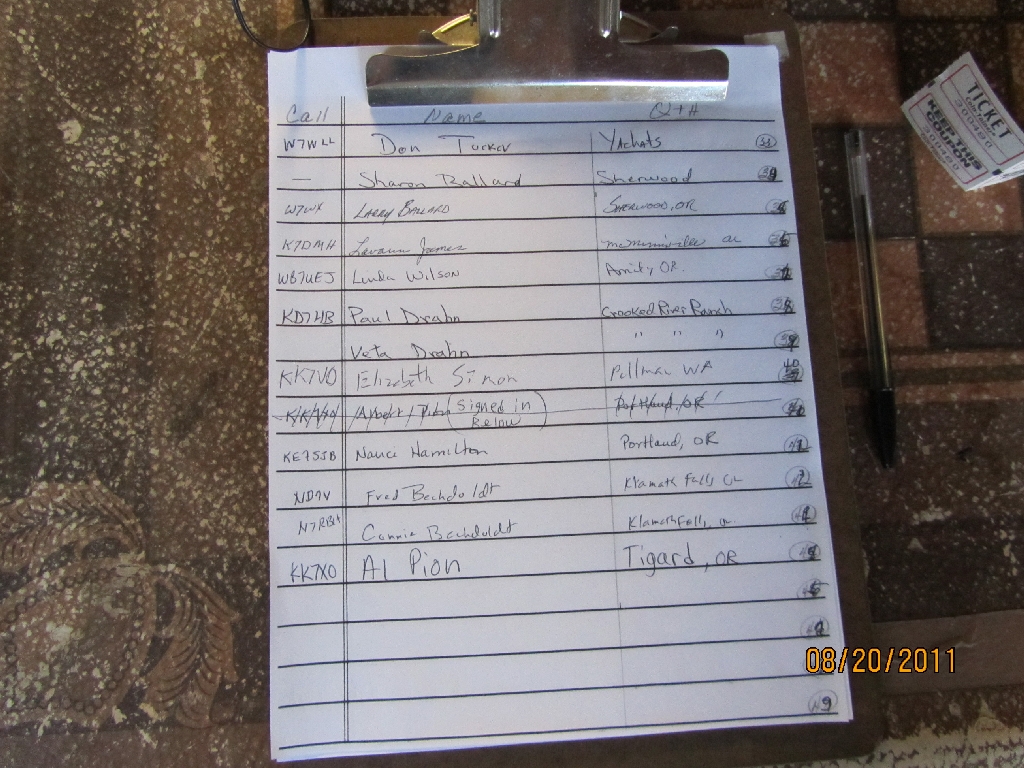 Call Name QTH
W7WLL Don Tucker Yachats 33
— Sharon Ballard Sherwood
W7WX LARRY BALLARD SHERWOOD, OR
K7DMH Lavaun James McMinnville OR
WB7UEJ Linda Wilson Amity OR.
KD7HB Paul Drahn Crooked River Ranch
Veta Drahn " " "
KK7VO Elizabeth Simon Pullman WA 40
(Signed in Below) Portland, OR
KE7SJB Nanci Hamilton Portland, OR
ND7V Fred Bachdoldt Klamath Falls Or
Connie Bachdoldt Klamath Falls, or
KK7XO Al Pion Tigard, OR
TICKET
KEEP THIS
COUPON
08/20/2011